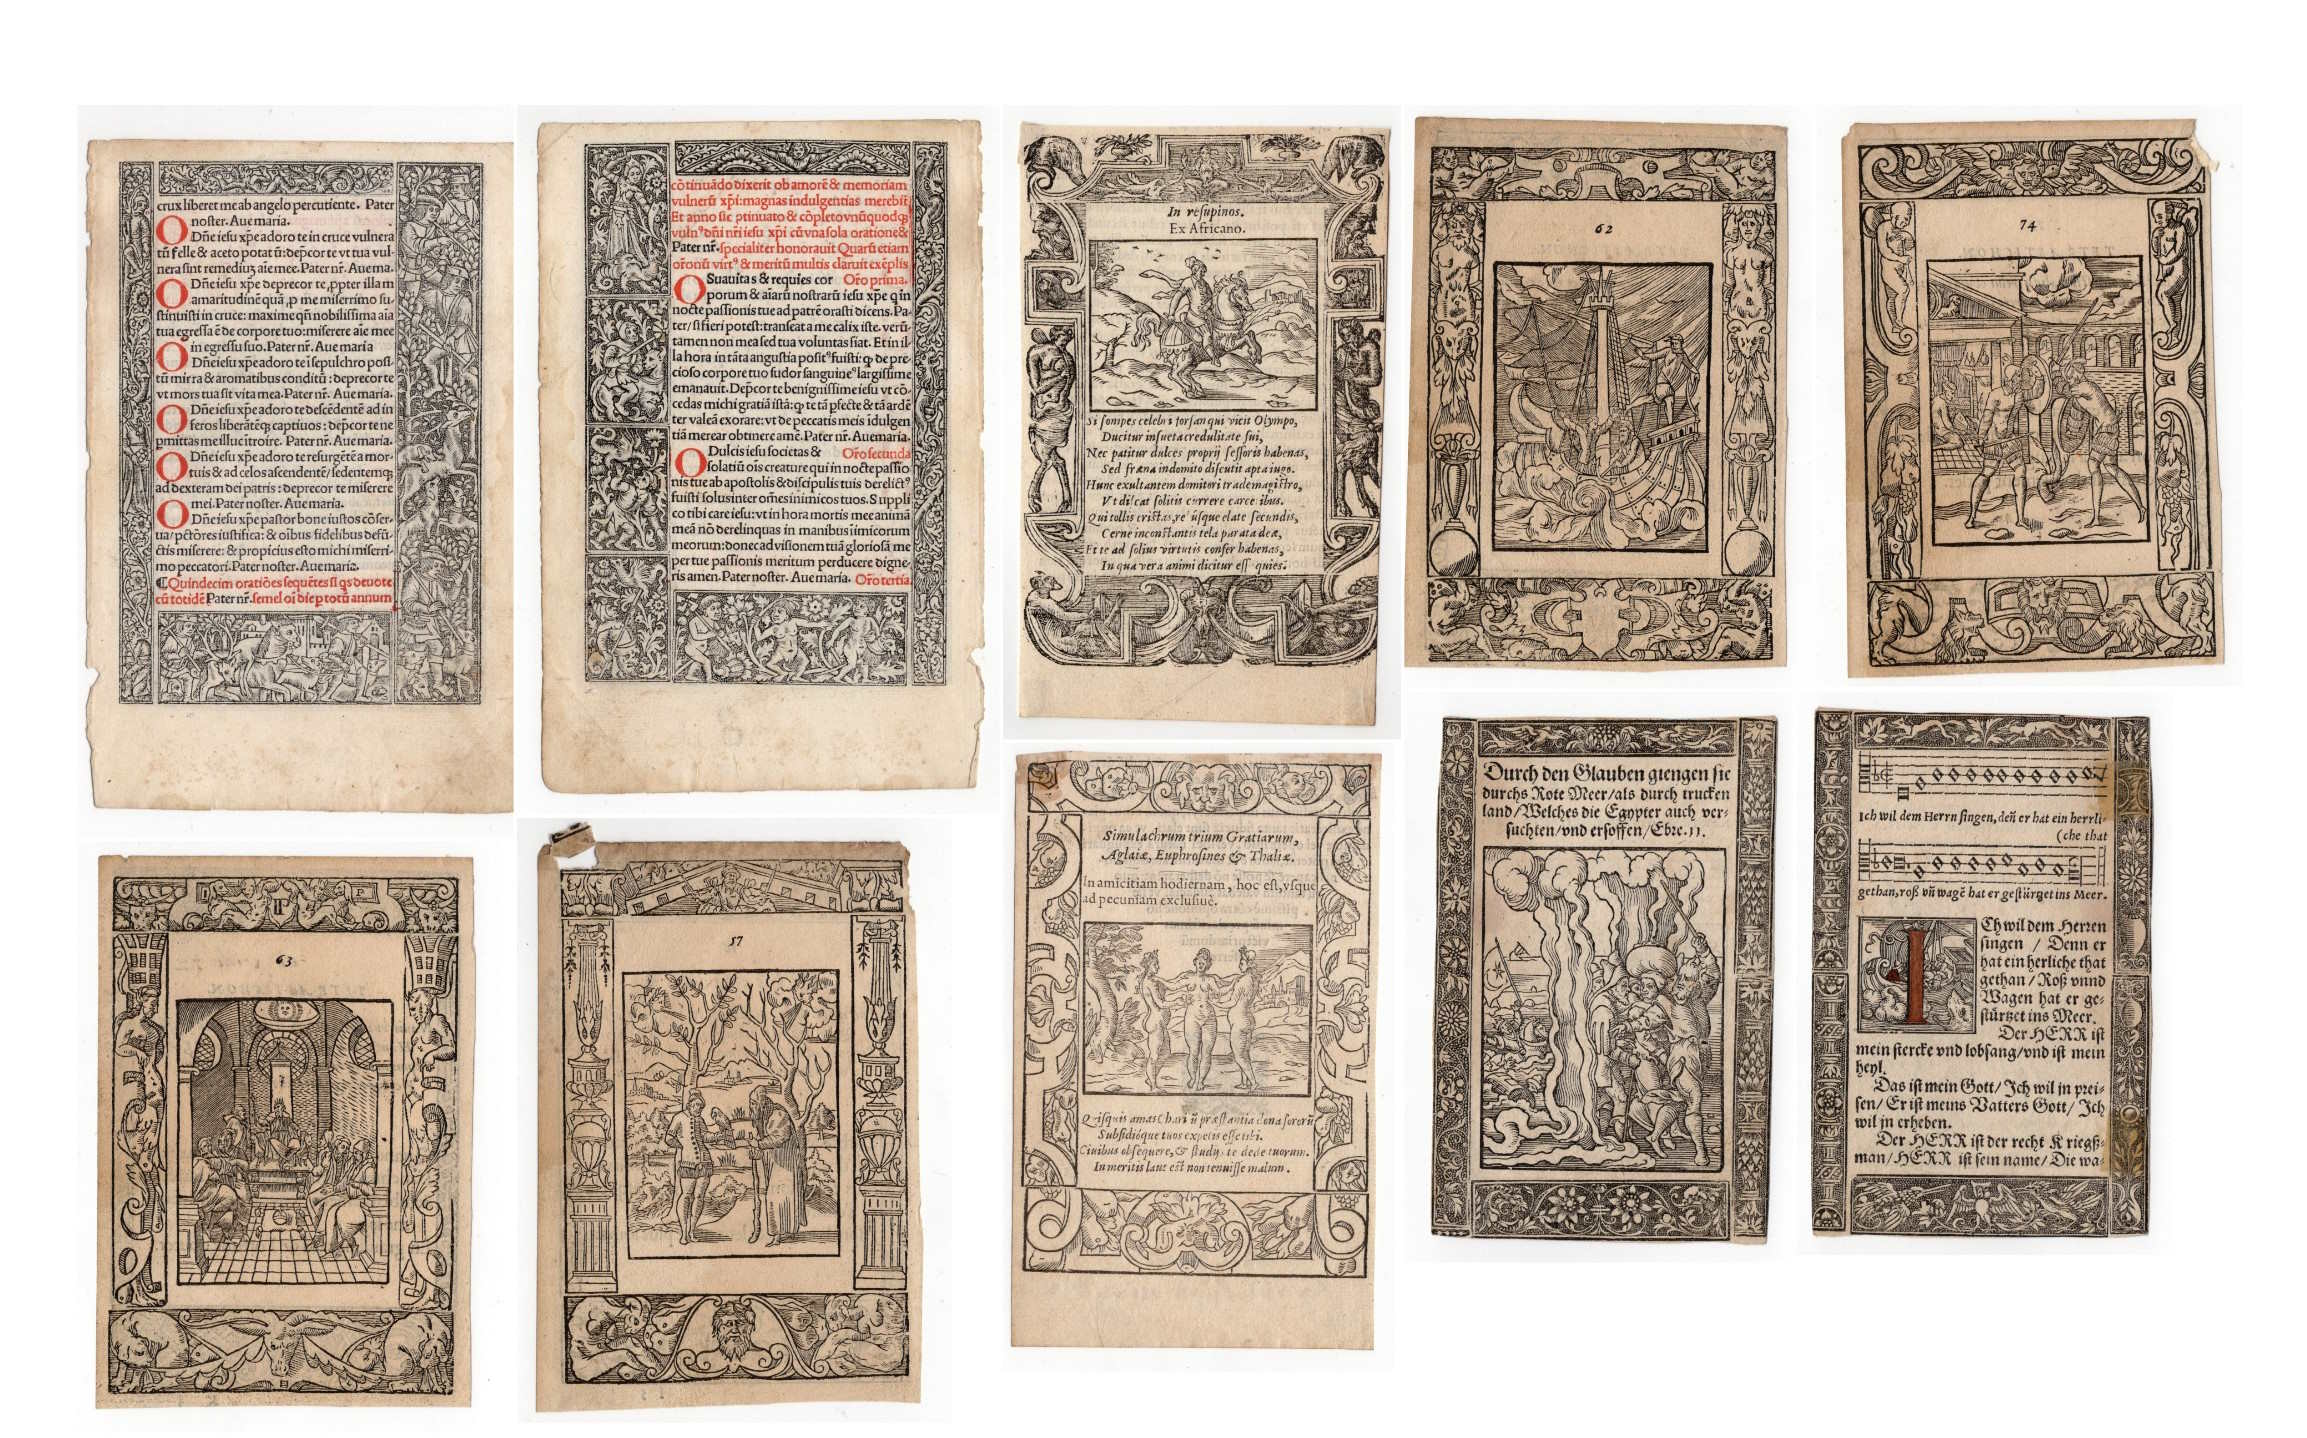 crux liberet me ab angelo percutiente. Pater
noster. Aue maria.
ODñe iesu xp̄e adoro te in cruce vulnera
tū felle & aceto potatū: dep̄cor te vt tua vul-
nera sint remediū aīe mee. Pater nr̄. Aue ma.
ODñe iesu xp̄e deprecor te ꝓpter illam
amaritudinē quā ꝓ me miserrimo su-
stinuisti in cruce: maxime qn̄ nobilissima aīa
tua egressa ē de corpore tuo: miserere aīe mee
in egressu suo. Pater nr̄. Aue maria
ODñe iesu xp̄e adoro te ī sepulchro posi-
tū mirra & aromatibus conditū: deprecor te
vt mors tua sit vita mea. Pater nr̄. Aue maria.
ODñe iesu xp̄e adoro te descēdentē ad in
feros liberātēq; captiuos: dep̄cor te ne
ꝑmittas me illuc ītroire. Pater nr̄. Aue maria.
ODñe iesu xp̄e adoro te resurgētē a mor-
tuis & ad celos ascendentē/ sedentemq;
ad dexteram dei patris: deprecor te miserere
mei. Pater noster. Aue maria.
ODñe iesu xp̄e pastor bone iustos cōser-
ua/ pctōres iustifica: & oībus fidelibus defū-
ctis miserere: & propicius esto michi miserri-
mo peccatori. Pater noster. Aue maria.
¶Quindecim oratiōes sequētes si qs deuote
cū totidē Pater nr̄. semel oī die ꝑ totū annum
cōtinuādo dixerit ob amorē & memoriam
vulnerū xp̄i: magnas indulgentias merebit
Et anno sic ꝑtinuato & cōpleto vnūquodq;
vulnꝰ dn̄i nr̄i iesu xp̄i cū vna sola oratione &
Pater nr̄. specialiter honorauit Quarū etiam
orōnū virtꝰ & meritū multis claruit exēplis
O Suauitas & requies cor Orō prima.
porum & aīarū nostrarū iesu xp̄e q̄ in
nocte passionis tue ad patrē orasti dicens. Pa-
ter/ si fieri potest: transeat a me calix iste. verū
tamen non mea sed tua voluntas fiat. Et in il
la hora in tāta angustia positꝰ fuisti: ꝙ de pre-
cioso corpore tuo sudor sanguineꝰ largissime
emanauit. Dep̄cor te benignissime iesu vt cō-
cedas michi gratiā istā: ꝙ te tā ꝑfecte & tā ardē
ter valeā exorare: vt de peccatis meis idulgen
tiā merear obtinere amē. Pater nr̄. Aue maria.
O Dulcis iesu societas & Orō secunda
solatiū oīs creature qui in nocte passio
nis tue ab apostolis & discipulis tuis derelictꝰ
fuisti solus inter oēs inimicos tuos. Suppli
co tibi care iesu: vt in hora mortis mee animā
meā nō derelinquas in manibus iīmicorum
meorum: donec ad visionem tuā gloriosā me
per tue passionis meritum perducere digne-
ris amen. Pater noster. Aue maria. Orō tertia.
In resupinos.
Ex Africano.
Si sompes celebri forsan qui vicit Olympo,
Ducitur insueta credulitate sui,
Nec patitur dulces proprij sessoris habenas,
Sed fræna indomito discutit apta iugo.
Hunc exultantem domitori trade magistro,
Vt discat solitis currere carceribus.
Qui tollis cristas, elate secundis,
Cerne inconstantis tela parata deæ,
Et te ad solius virtutis confer habenas,
In qua vera animi dicitur esse quies.
62
74
63
57
Simulachrum trium Gratiarum,
Aglaiæ, Euphrosines & Thaliæ.
In amicitiam hodiernam, hoc est, vsque
ad pecuniam exclusiuè.
Quisquis amas Charitū præstantia dona sororū
Subsidióque tuos expetis esse tibi.
Ciuibus obsequere, & studijs te dede tuorum.
In meritis laus est non tenuisse malum.
Durch den Glauben giengen sie
durchs Rote Meer/als durch trucken
land/Welches die Egypter auch ver-
suchten/vnd ersoffen/Ebre.11.
Ich wil dem Herrn singen, deñ er hat ein herrli-
(che that
gethan, roß vñ wagē hat er gestürtzet ins Meer.
ICh wil dem Herren
singen / Denn er
hat ein herliche that
gethan / Roß vnnd
Wagen hat er ge-
stürtzet ins Meer.
Der HERR ist
mein stercke vnd lobsang/vnd ist mein
heyl.
Das ist mein Gott/ Ich wil jn prei-
sen/ Er ist meins Vatters Gott/ Ich
wil jn erheben.
Der HERR ist der recht Kriegß-
man/ HERR ist sein name/ Die wa-